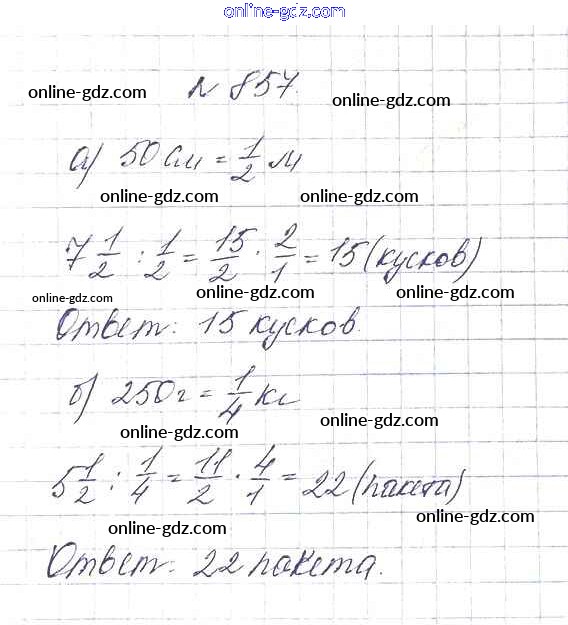 online-gdz.com
№ 857.
online-gdz.com online-gdz.com
а) 50 см = 1/2 м
online-gdz.com online-gdz.com
7 1/2 : 1/2 = 15/2 · 2/1 = 15 (кусков)
online-gdz.com online-gdz.com online-gdz.com
Ответ: 15 кусков.
б) 250 г = 1/4 кг
online-gdz.com online-gdz.com
5 1/2 : 1/4 = 11/2 · 4/1 = 22 (пакета)
online-gdz.com online-gdz.com
Ответ: 22 пакета.